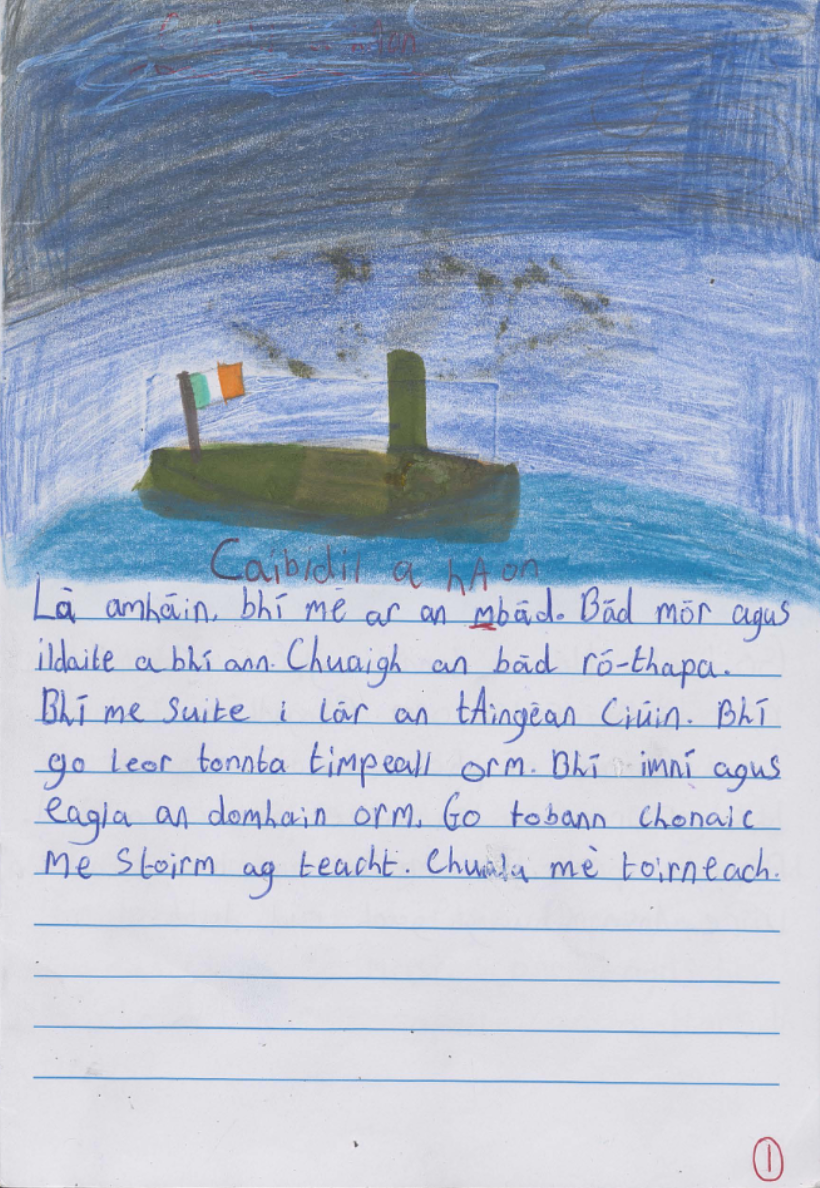 Caibidil a hAon
Lá amháin, bhí mé ar an mbád. Bád mór agus
ildaite a bhí ann. Chuaigh an bád ró-thapa.
Bhí me suite i lár an tAingéan Ciúin. Bhí
go leor tonnta timpeall orm. Bhí imní agus
eagla an domhain orm. Go tobann chonaic
me stoirm ag teacht. Chuala mè toirneach.
1